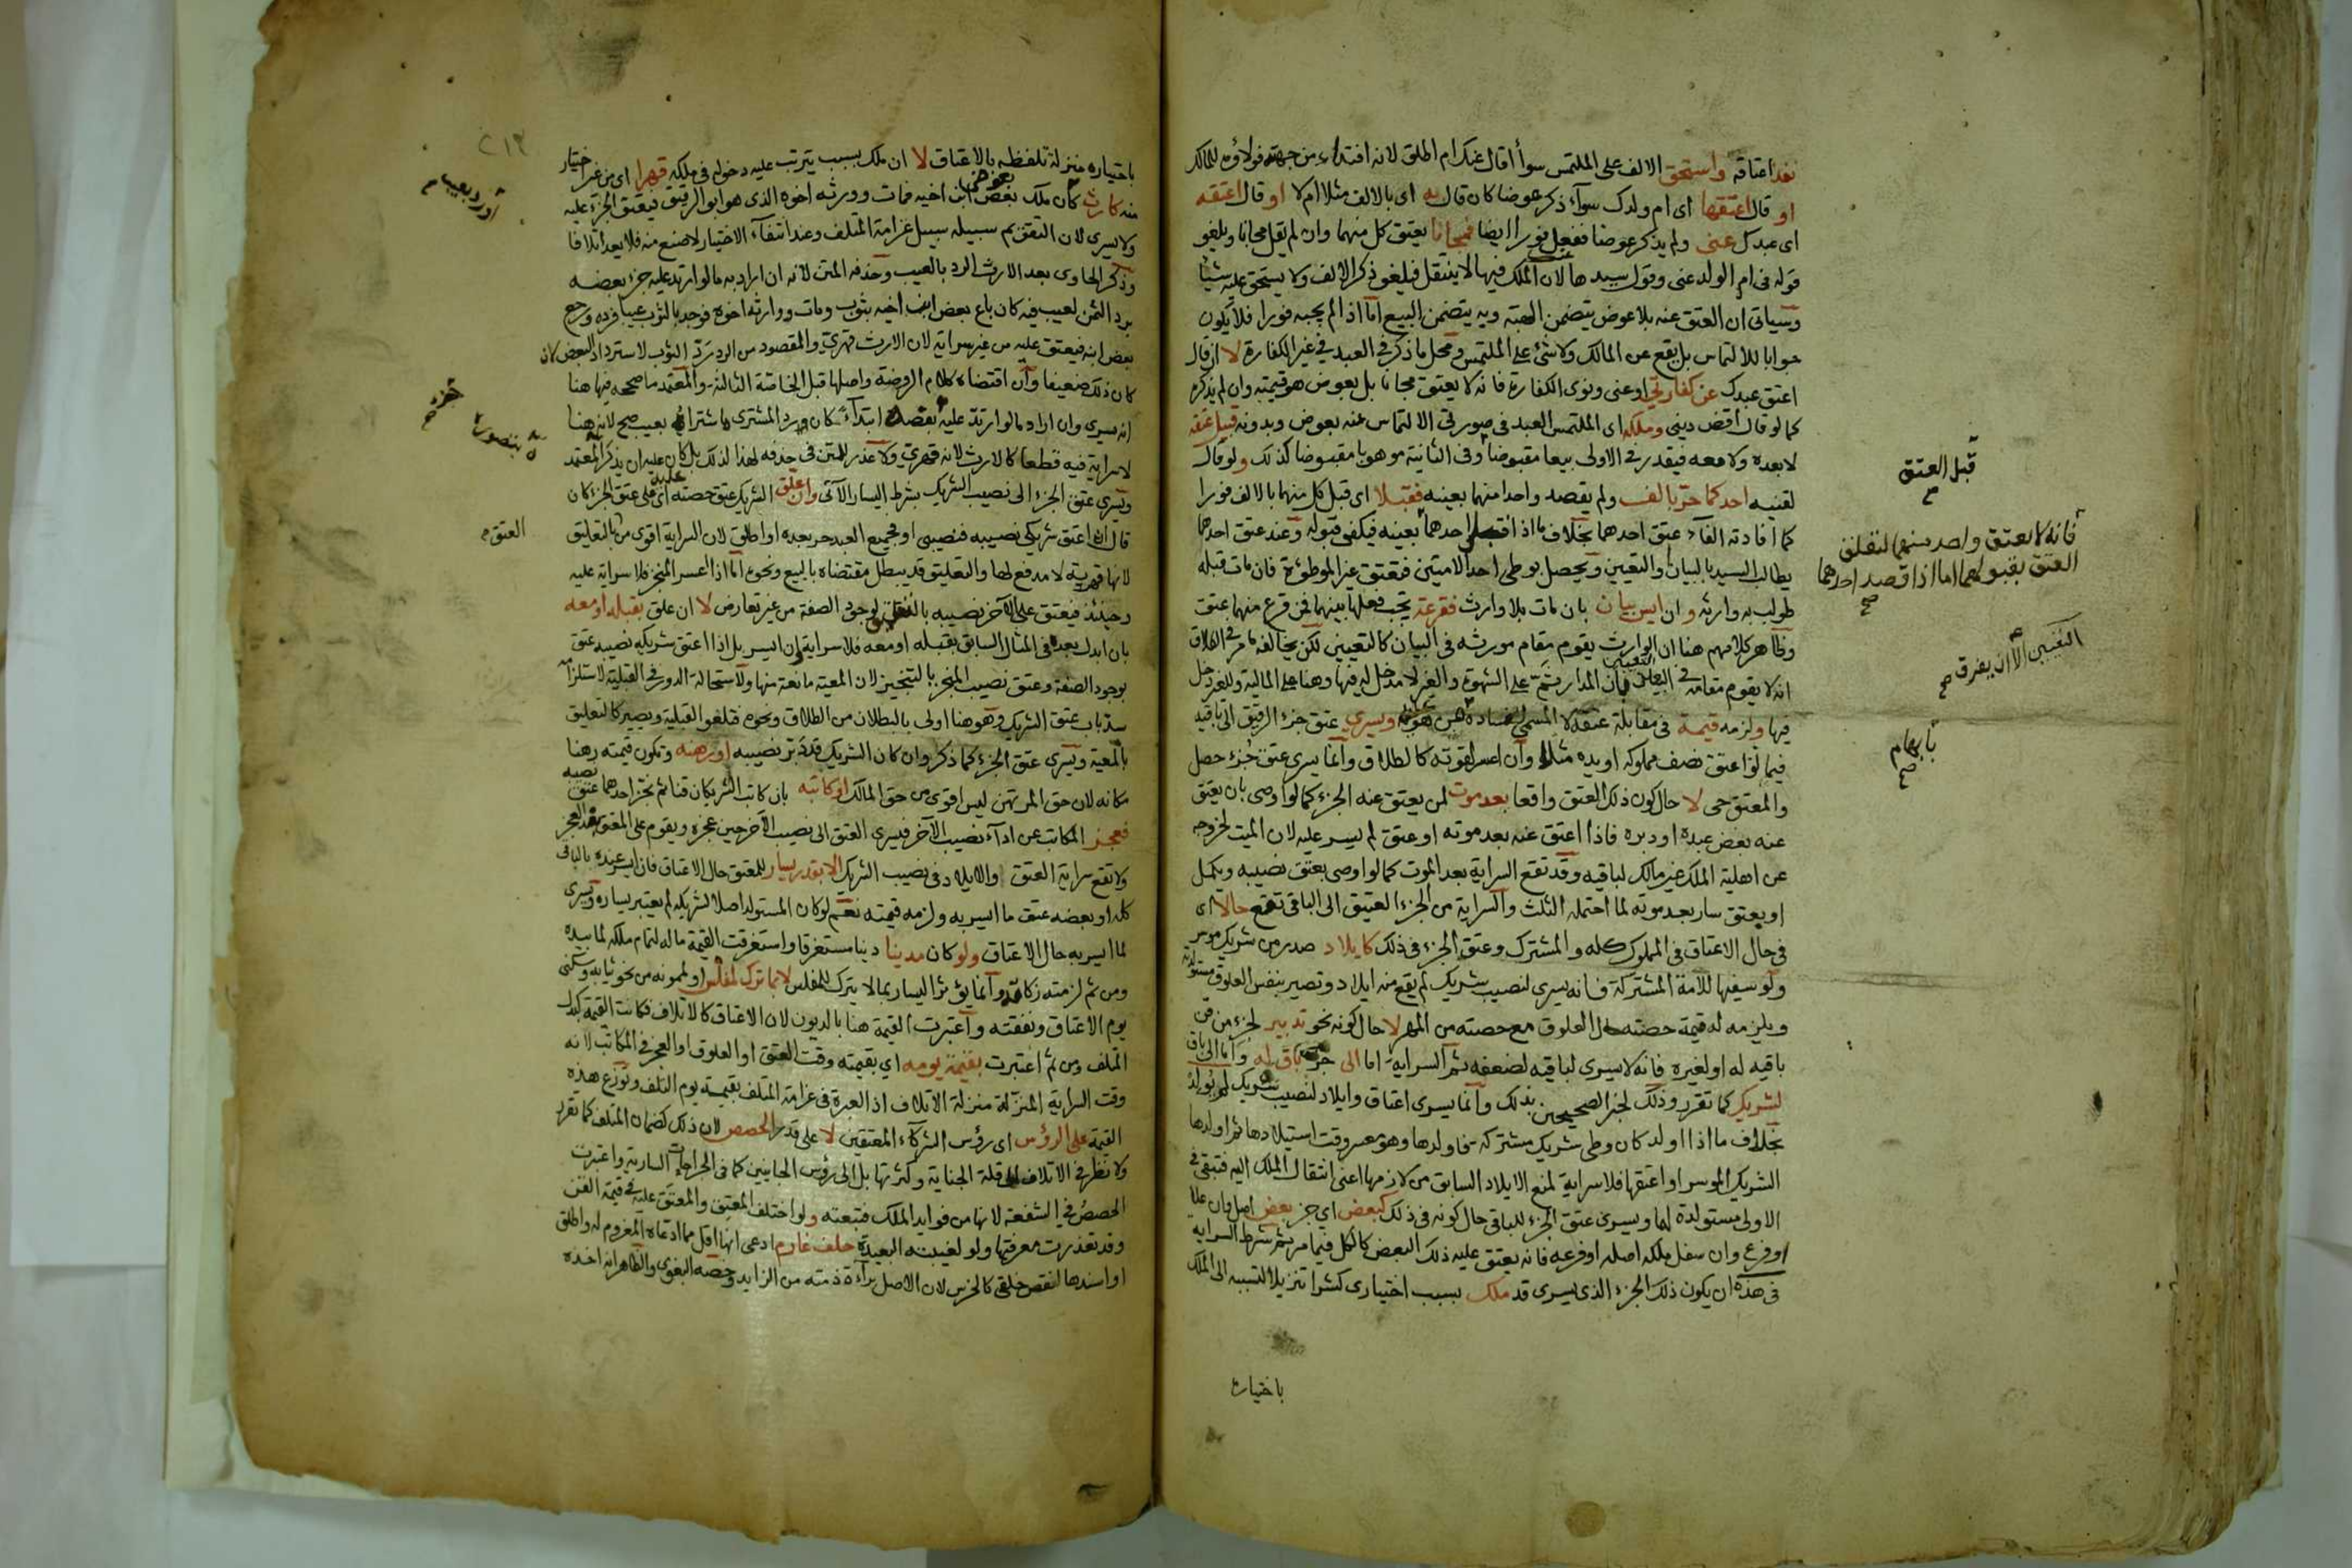 نفذ اعتاقه واستحق الالف على الملتمس سوأ أقال عنك ام اطلق لانه افتداء من جهته فولاؤه للمالك
او قال اعتقها اى ام ولدك سوآء ذكر عوضا كان قال به اى بالالف مثلا ام لا او قال اعتقه
اى عبدك عنى ولم يذكر عوضا ففعل فورا ايضا فمجانا يعتق كل منهما وان لم يقل مجانا ويلغو
قوله فى ام الولد عنى وقول سيدها لان الملك فيها لا ينتقل فيلغو ذكر الالف ولا يستحق عليه شيئا
وسياتى ان العتق عنه بلا عوض يتضمن الهبة وبه يتضمن البيع اما اذا لم يجبه فورا فلا يكون
جوابا للالتماس بل يقع عن المالك ولا شئ على الملتمس ومحل ما ذكر فى العبد فى غير الكفارة لا ان قال
اعتق عبدك عن كفارتي او عنى ونوى الكفارة فانه لا يعتق مجانا بل بعوض هو قيمته وان لم يذكره
كما لو قال اقض دينى وملكه اى الملتمس العبد فى صورتى الالتماس عنه بعوض وبدونه قبيل عتقه
لا بعده ولا معه فيقدر فى الاولى بيعا مقبوضا وفى الثانية موهوبا مقبوضا كذلك ولو قال
لقنيه احدكما حر بالف ولم يقصد واحدا منهما بعينه فقبلا اى قبل كل منهما بالالف فورا
كما افادته الفآء عتق احدهما بخلاف ما اذا قصد احدهما بعينه فيكفى قبوله وعند عتق احدهما
يطالب السيد بالبيان والتعيين ويحصل بوطئ احد الامتين فتعتق غير الموطؤة فان مات قبله
طولب به وارثه وان ايس بيان بان مات بلا وارث فقرعة يجب فعلها بينهما فمن قرع منهما عتق
وظاهر كلامهم هنا ان الوارث يقوم مقام مورثه فى البيان كالتعيين لكن يخالفه ما مر فى الطلاق
انه لا يقوم مقامه فى التعيين بان المدار ثم على الشهوة والغير لا مدخل له فيها وهنا على المالية وللغير دخل
فيها ولزمه قيمة فى مقابلة عتقه لا المسمى لفساده ويسري عتق جزء الرقيق الى باقيه
فيما لو اعتق نصف مملوكه او يده مثلا وان اعسر لقوته كالطلاق وانما يسرى عتق جزء حصل
والمعتق حى لا حال كون ذلك العتق واقعا بعد موت لمن يعتق عنه الجزء كما لو اوصى بان يعتق
عنه بعض عبده او دبره فاذا اعتق عنه بعد موته او عتق لم يسر عليه لان الميت لخروجه
عن اهلية الملك غير مالك لباقيه وقد تقع السراية بعد الموت كما لو اوصى بعتق نصيبه وبكمل
او يعتق سار بعد موته لما احتمله الثلث والسراية من الجزء العتيق الى الباقى تقع حالا اى
فى حال الاعتاق فى المملوك كله والمشترك وعتق الجزء فى ذلك كايلاد صدر من شريك موسر
ولو سفيها للامة المشتركة فانه يسرى لنصيب شريك لم يقع منه ايلاد وتصير بنفس العلوق مستولدته
ويلزمه له قيمة حصته حال العلوق مع حصته من المهر لا حال كونه نحو تدبير لجزء من قن
باقيه له او لغيره فانه لا يسرى لباقيه لضعفه ثم السراية اما الى جزء باق له واما الى باق
لشريك كما تقرر وذلك لخبر الصحيحين بذلك وانما يسرى اعتاق وايلاد لنصيب شريك لم يولد
بخلاف ما اذا اولد كان وطى شريك مشتركة فاولدها وهو معسر وقت استيلادها ثم اولدها
الشريك الموسر او اعتقها فلا سراية لمنع الايلاد السابق من لازمها اعنى انتقال الملك اليه فتبقى فى
الاولى مستولدة لهما ويسرى عتق الجزء للباقى حال كونه فى ذلك كبعض اي جزء بعض اصل وان علا
او فرع وان سفل ملكه اصله او فرعه فانه يعتق عليه ذلك البعض كالكل فيما مر ثم شرط السراية
فى هذه ان يكون ذلك الجزء الذى يسرى قد ملك بسبب اختيارى كشرا تنزيلا لتسببه الى الملك
باختياره
قبل العتق
صح
فانه لا يعتق واحد منهما لتعلق
العتق بقبولهما اما اذا قصد احدهما
صح
التعيين الا ان يفرق
صح
صح
٢١٣
باختياره منزلة تلفظه بالاعتاق لا ان ملك بسبب يترتب عليه دخوله فى ملكه قهرا اى من غير اختيار
منه كارث كأن ملك بعض ابن اخيه فمات وورثه اخوه الذى هو ابو الرقيق فيعتق الجزء عليه
ولا يسرى لان التعق ثم سبيله سبيل غرامة المتلف وعند انتفآء الاختيار لا صنع منه فلا يعد اتلافا
وذكر الحاوى بعد الارث الرد بالعيب وحذفه المتن لانه ان اراد به ما لو ارتد عليه جزء بعضه
برد الثمن لعيب فيه كان باع بعض ابن اخيه بثوب ومات ووارثه اخوه فوجد بالثوب عيبا فرده ورجع
بعض ابنه فيعتق عليه من غير سراية لان الارث قهري والمقصود من الرد رد الثوب لا استرداد البعض كان
كان ذلك ضعيفا وان اقتضاه كلام الروضة واصلها قبل الخاصة الثالثة والمعتمد ما صححه فيها هنا
انه يسرى وان اراد ما لو ارتد عليه بعضه ابتدآء كان رد المشترى ما اشتراه بعيب صح لانه هنا
لا سراية فيه قطعا كالارث لانه قهري ولا عذر للمتن فى حذفه لهذا لذلك بل كان عليه ان يذكر المعتمد
ويسرى عتق الجزء الى نصيب الشريك بشرط اليسار الآتى وان علق الشريك عتق حصته اى على عتق الجزء كان
قال ان اعتق شريكى نصيبه فنصيبى او فجميع العبد حر بعده او اطلق لان السراية اقوى من بالتعليق
لانها قهرية لا مدفع لها والتعليق قد يبطل مقتضاه بالبيع ونحوه اما اذا اعسر المنجز فلا سراية عليه
وحينئذ فيعتق على الآخر نصيبه بالتعليق لوجود الصفة من غير تعارض لا ان علق بقبله او معه
بان ابدل بعده فى المثال السابق بقبله او معه فلا سراية وان ايسر بل اذا اعتق شريكه نصيبه عتق
بوجود الصفة وعتق نصيب المنجز بالتنجيز لان المعية مانعة منها ولاستحالة الدور فى القبلية لاستلزامه
سد باب عتق الشريك وهو هنا اولى بالبطلان من الطلاق ونحوه فتلغو القبلية ويصير كالتعليق
بالمعية ويسرى عتق الجزء كما ذكر وان كان الشريك قد دبر نصيبه او رهنه وتكون قيمته رهنا
مكانه لان حق المرتهن ليس اقوى من حق المالك او كاتبه بان كاتب الشريكان قنا ثم نجز احدهما عتق نصيبه
فعجز المكاتب عن ادآء نصيب الآخر فيسرى العتق الى نصيب الآخر حين عجزه ويقوم على المعتق بعد العجز
ولا تقع سراية العتق والايلاد فى نصيب الشريك الا بقدر يسار للمعتق حال الاعتاق فان ايسر عنده بالباقى
كله او بعضه عتق ما ايسر به ولزمه قيمته نعم لو كان المستولد اصلا لشريكه لم يعتبر يساره ويسرى
لما ايسر به حال الاعتاق ولو كان مدينا دينا مستغرقا واستغرقت القيمة ماله لتمام ملكه لما بيده
ومن ثم لزمته زكاته وانما يؤثر اليسار بما لا يترك للمفلس لا بما ترك لمفلس او لممونه من نحو ثيابه وسكنى
يوم الاعتاق ونفقته واعتبرت القيمة هنا بالديون لان الاعتاق كالاتلاف فكانت القيمة كبدل
المتلف ومن ثم اعتبرت بقيمة يومه اي بقيمته وقت العتق او العلوق او العجز فى المكاتب لانه
وقت السراية المنزلة منزلة الاتلاف اذ العبرة فى غرامة المتلف بقيمة يوم التلف وتوزع هذه
القيمة على الرؤس اى رؤس الشركآء المعتقين لا على قدر الحصص لان ذلك كضمان المتلف كما تقرر
ولا نظر فى الاتلاف الى قلة الجناية وكثرتها بل الى رؤس الجانيين كما فى الجراحات السارية واعتبرت
الحصص فى الشفعة لانها من فوايد الملك فتبعته ولو اختلف المعتق والمعتق عليه فى قيمة القن
وقد تعذرت معرفتها ولو لغيبته البعيدة حلف غارم ادعى انها اقل مما ادعاه المغروم له واطلق
او اسندها لنقص خلقى كالخرس لان الاصل برآءة ذمته من الزايد وخصه البغوى والظاهر انه اخذه
او رد بعيب
العتق